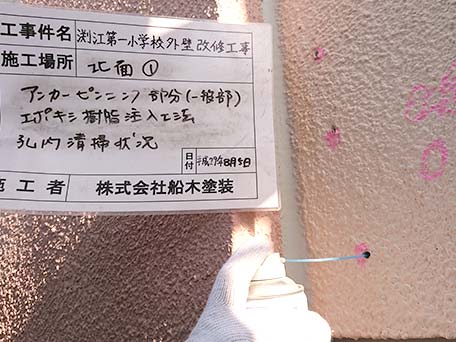 工事件名 渕江第一小学校外壁改修工事
施工場所 北面①
アンカーピンニング部分(一般部)
エポキシ樹脂注入工法
孔内清掃状況
日付 平成29年8月5日
施工者 株式会社船木塗装